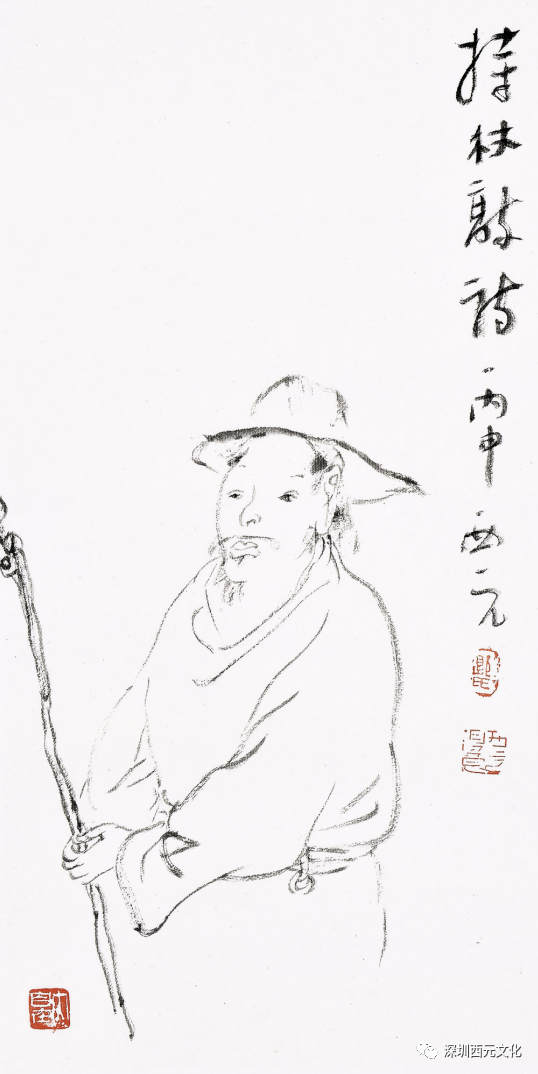 持杖敲诗 丙申 西元
深圳西元文化